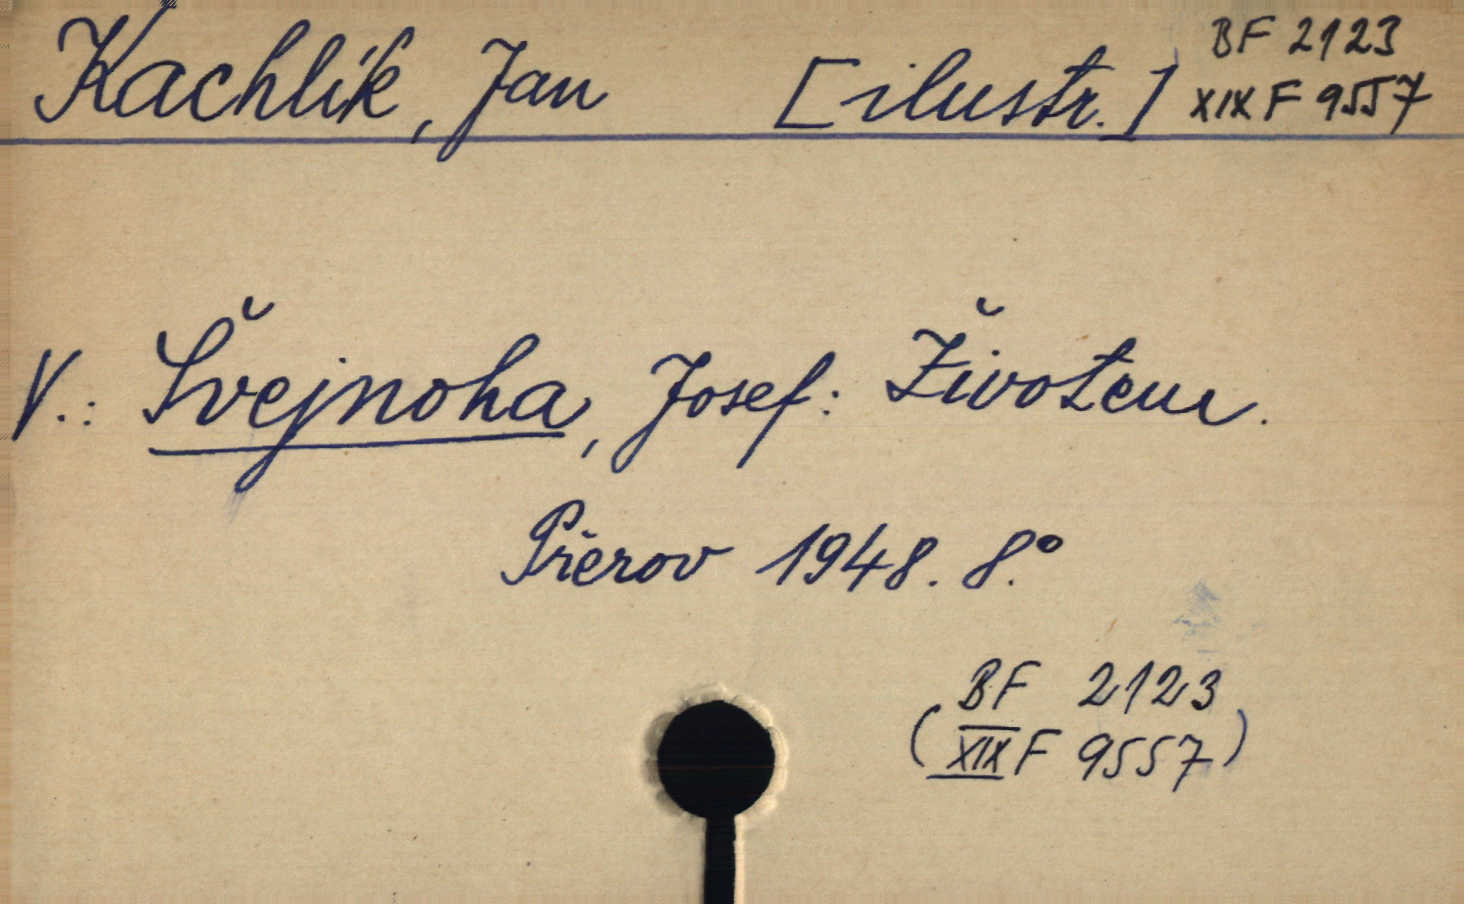 Kachlík, Jan [ilustr.] BF 2123
XIX F 9557
V.: Švejnoha, Josef: Životem.
Přerov 1948. 8.°
BF 2123
(XIX F 9557)